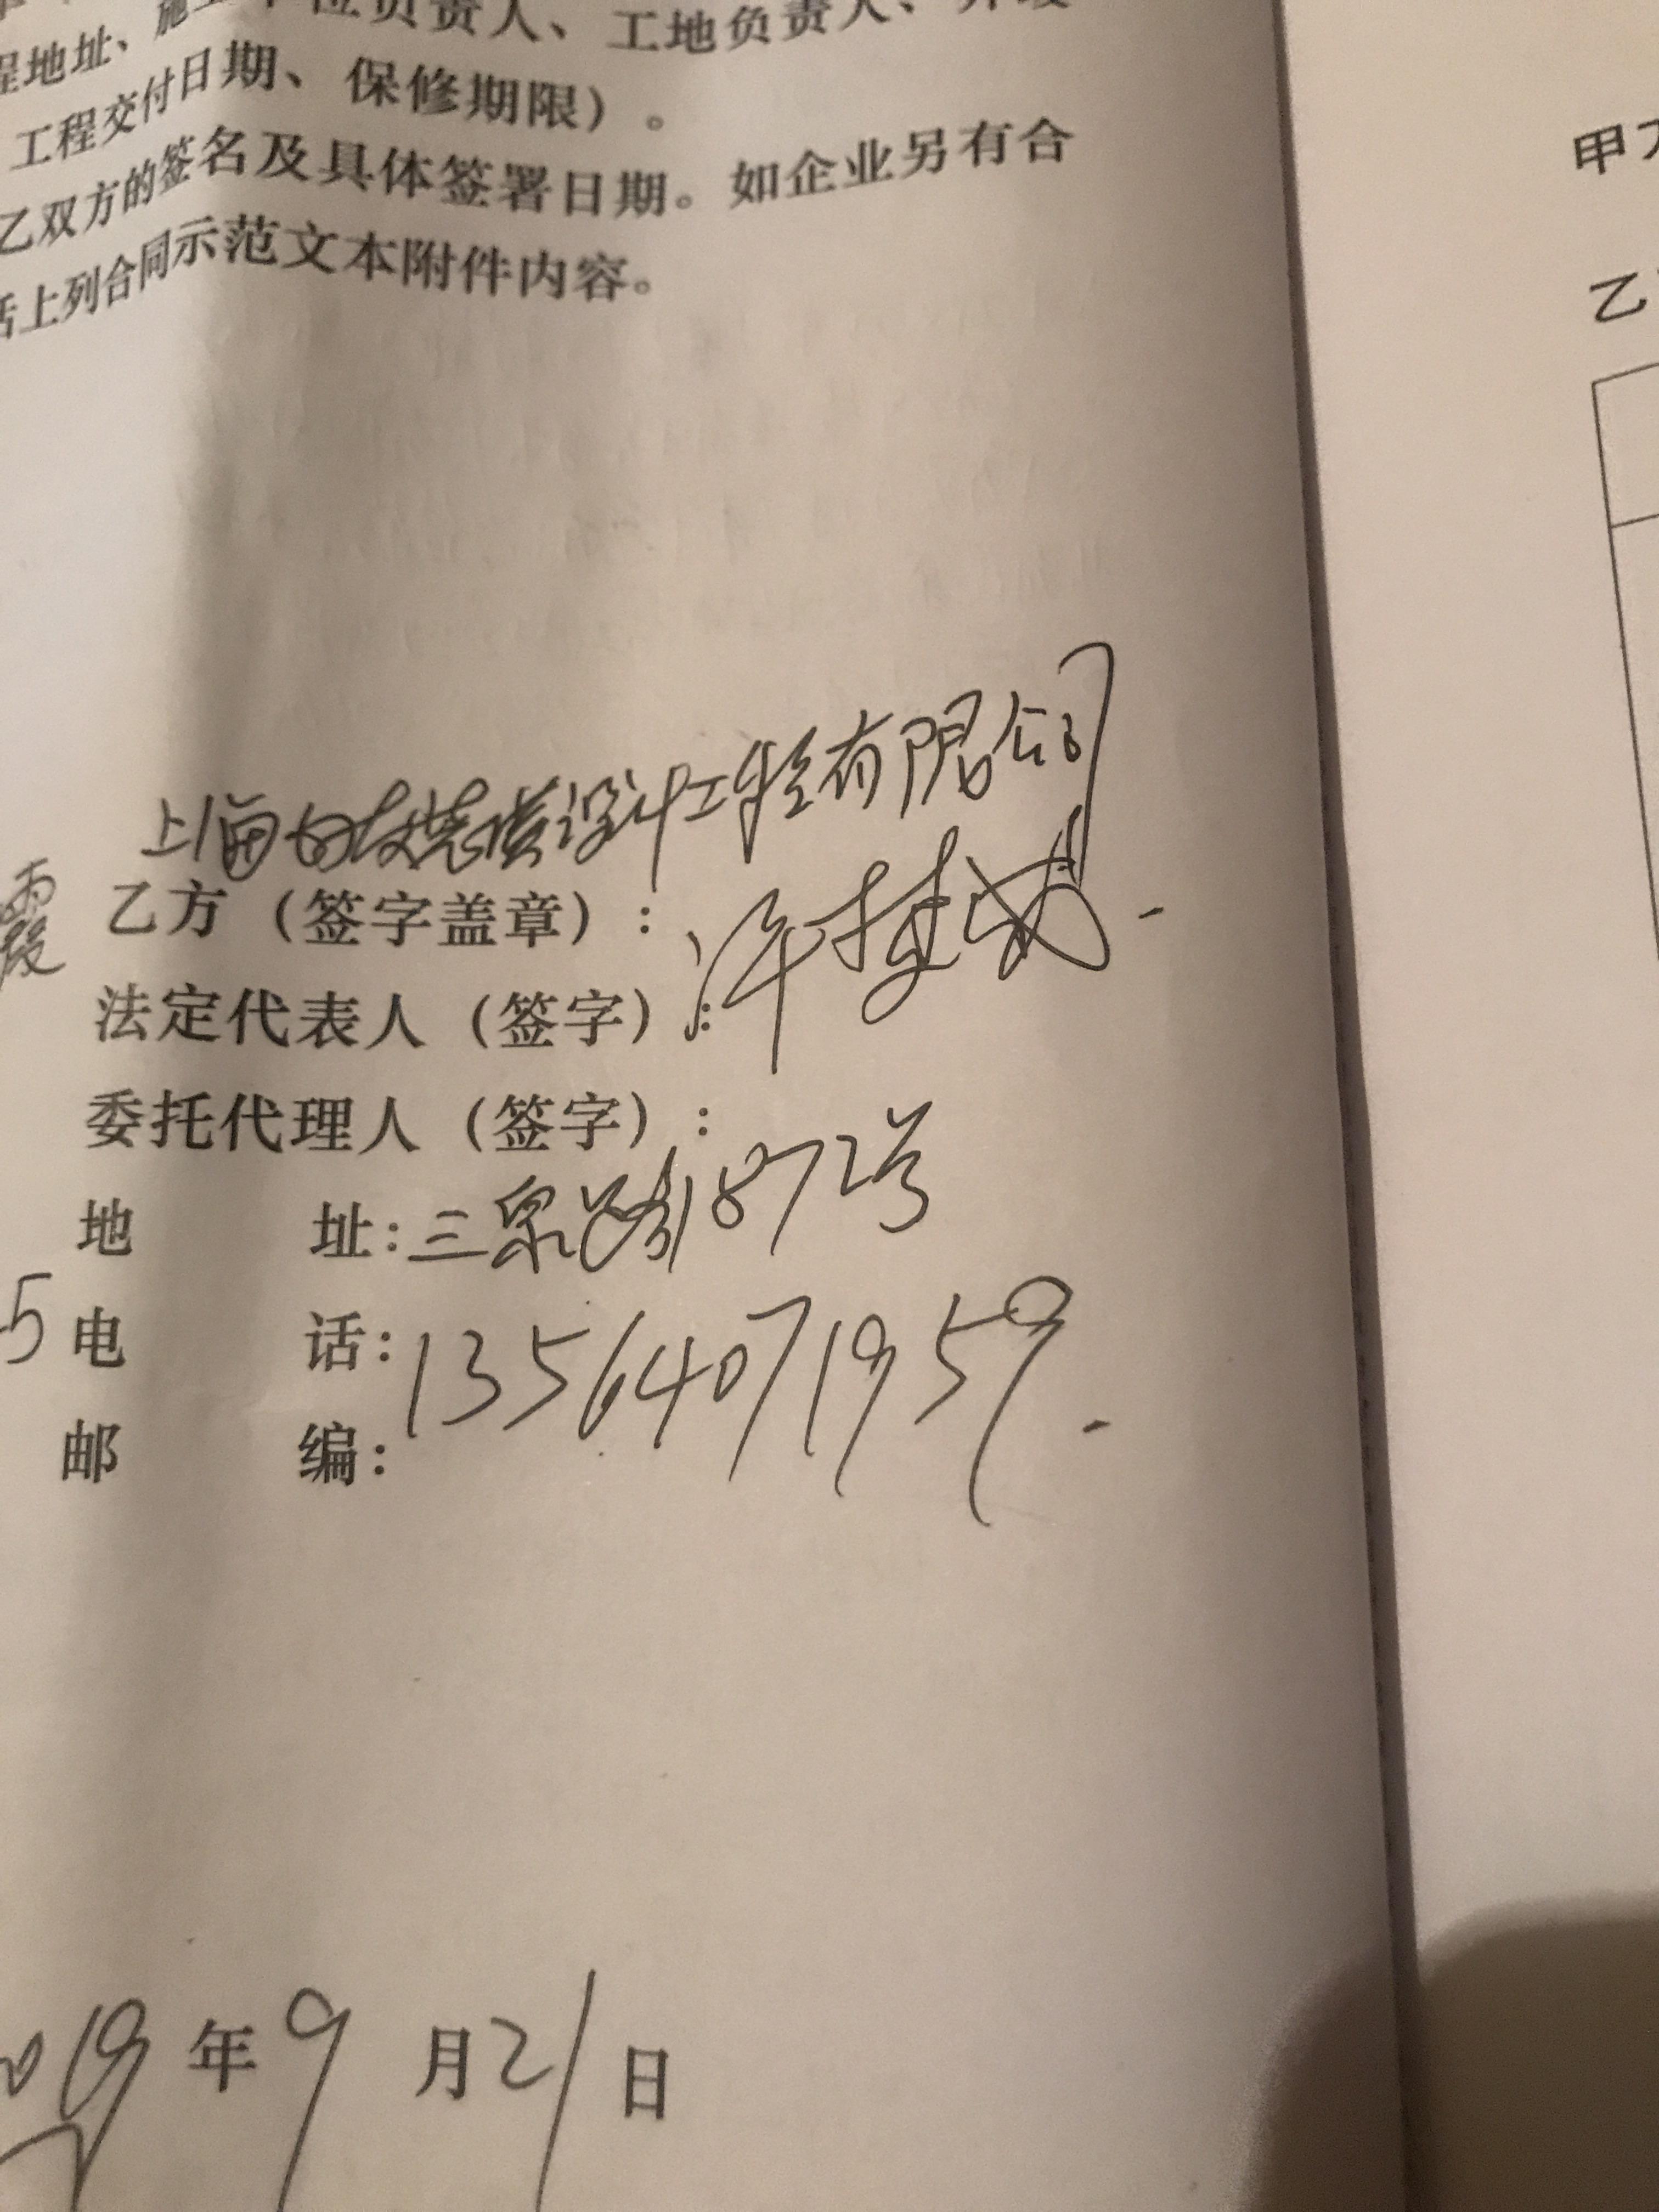 程地址、施工单位负责人、工地负责人、开
工程交付日期、保修期限）。
乙双方的签名及具体签署日期。如企业另有合
括上列合同示范文本附件内容。
上海 友装潢设计工程有限公司
霞
乙方（签字盖章）：许
法定代表人（签字）：
委托代理人（签字）：
地 址：三泉路1872号
5
电 话：13564071959
邮 编：
2019年9月21日
甲方
乙